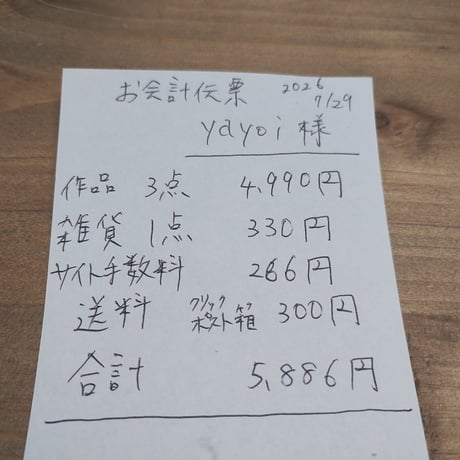 お会計伝票 2026 7/29
yayoi様
作品 3点 4,990円
雑貨 1点 330円
サイト手数料 266円
送料 クリックポスト箱 300円
合計 5,886円